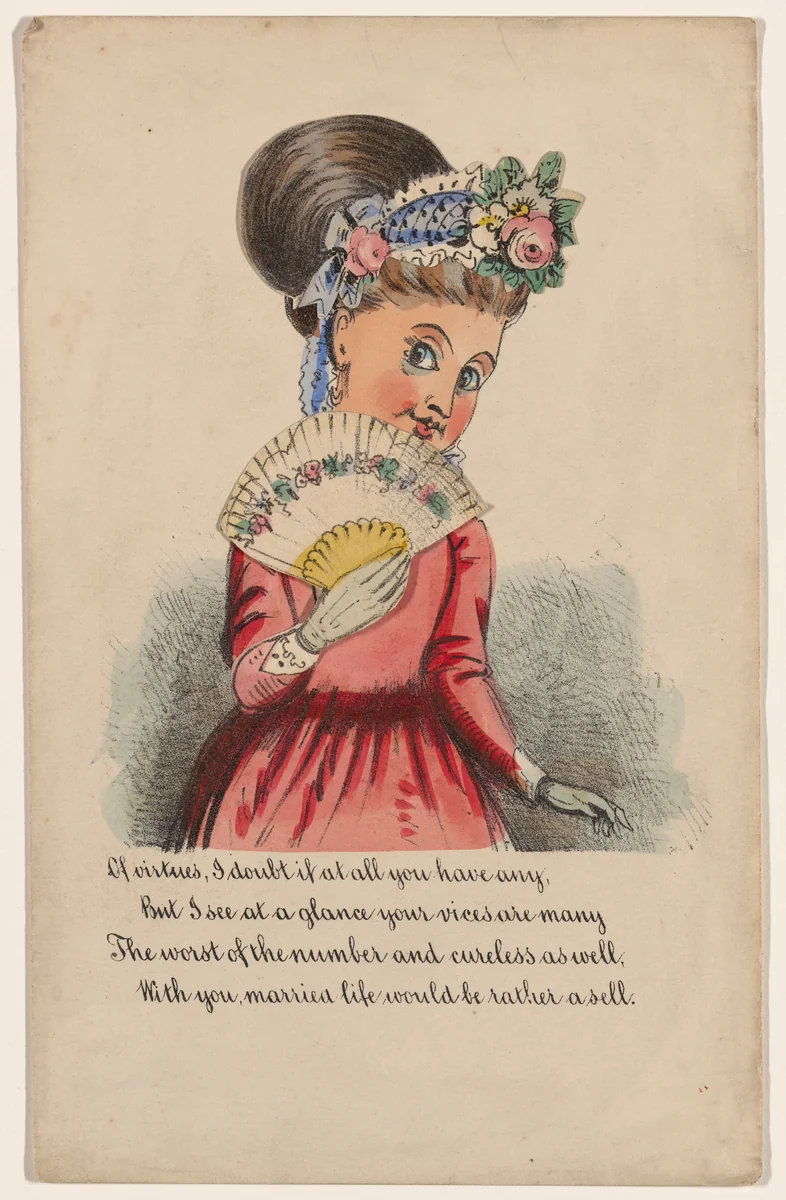 Of virtues, I doubt if at all you have any,
But I see at a glance your vices are many
The worst of the number and cureless as well,
With you, married life would be rather a sell.